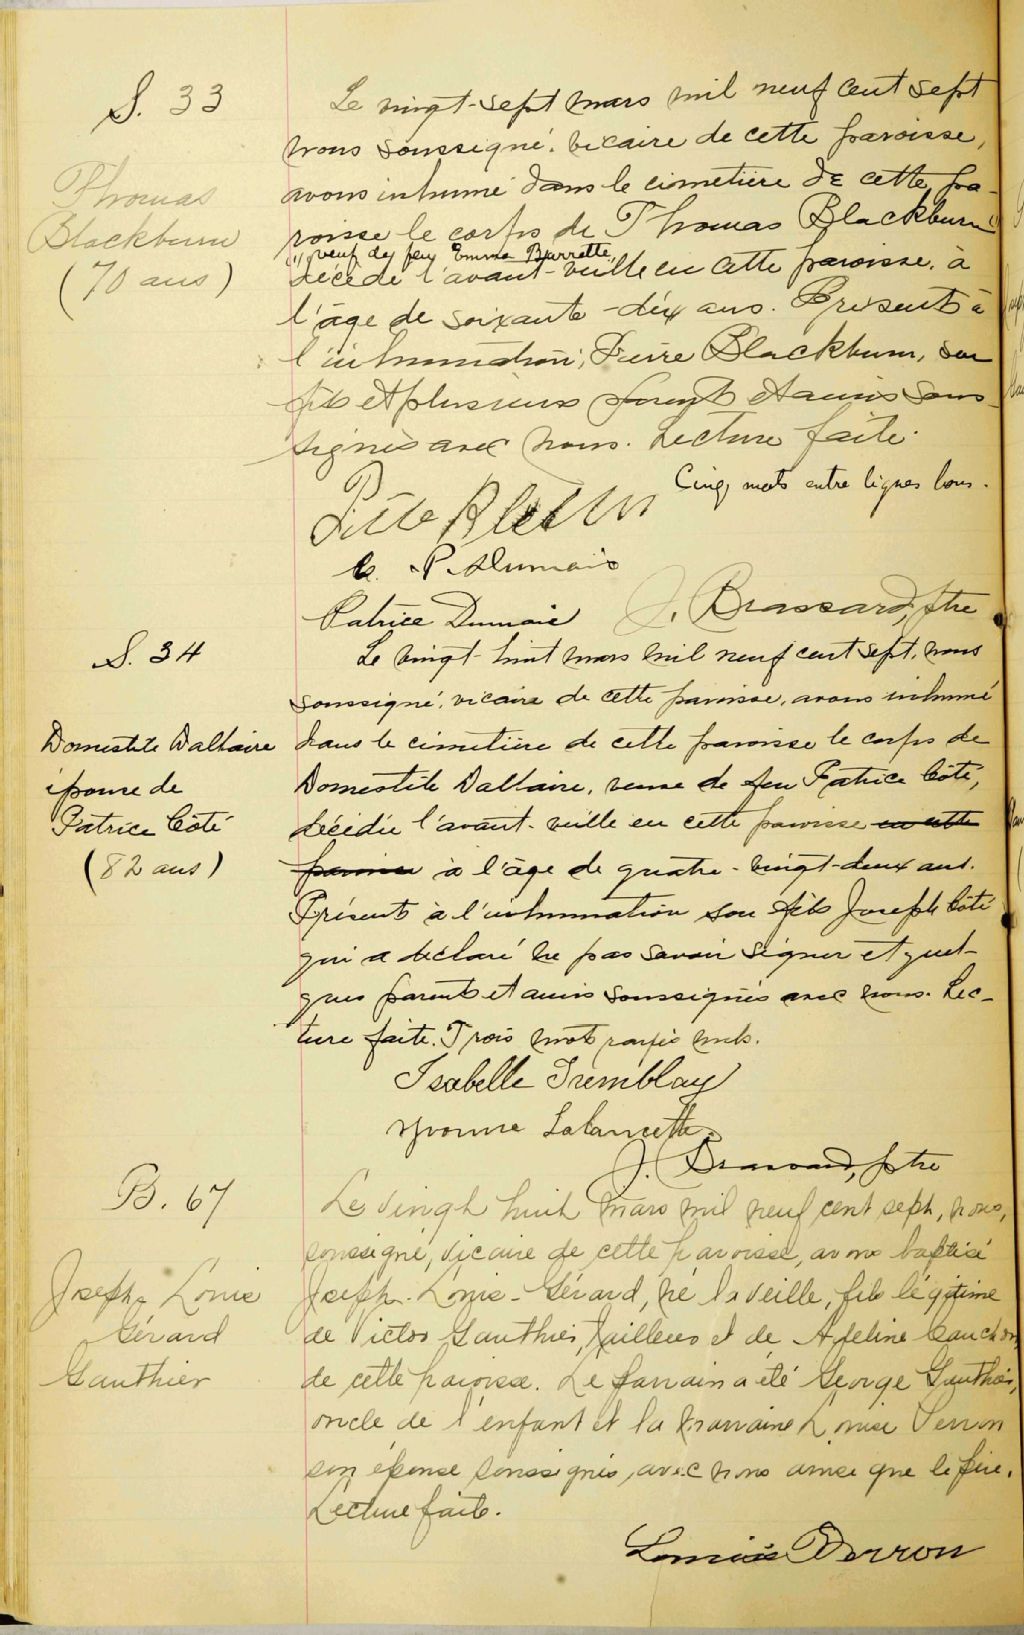 S. 33
Thomas
Blackburn
(70 ans)
Le vingt-sept mars mil neuf cent sept
nous soussigné, vicaire de cette paroisse,
avons inhumé dans le cimetière de cette pa-
roisse le corps de Thomas Blackburn
veuf de feu Emma Barrette,
décédé l'avant-veille en cette paroisse, à
l'âge de soixante-dix ans. Présents à
l'inhumation, Pierre Blackburn, son
fils et plusieurs parents et amis sous-
signés avec nous. Lecture faite.
Cinq mots entre lignes bons.
P. Dumais
Patrice Dumais J. Brassard, ptre
S. 34
Domestile Daltaire
épouse de
Patrice Côté
(82 ans)
Le vingt-huit mars mil neuf cent sept, nous
soussigné, vicaire de cette paroisse, avons inhumé
dans le cimetière de cette paroisse le corps de
Domestile Daltaire, veuve de feu Patrice Côté,
décédée l'avant-veille en cette paroisse en cette
paroisse à l'âge de quatre-vingt-deux ans.
Présents à l'inhumation son fils Joseph Côté
qui a déclaré ne pas savoir signer et quel-
ques parents et amis soussignés avec nous. Lec-
ture faite. Trois mots rayés nuls.
Isabelle Tremblay
Yvonne Lalancette
J. Brassard, ptre
B. 67
Joseph Louis
Gérard
Gauthier
Le vingt huit mars mil neuf cent sept, nous,
soussigné, vicaire de cette paroisse, avons baptisé
Joseph-Louis-Gérard, né la veille, fils légitime
de Victor Gauthier, tailleur et de Adeline Cauchon
de cette paroisse. Le parrain a été George Gauthier,
oncle de l'enfant et la marraine Louise Perron
son épouse soussignés, avec nous ainsi que le père.
Lecture faite.
Louise Perron